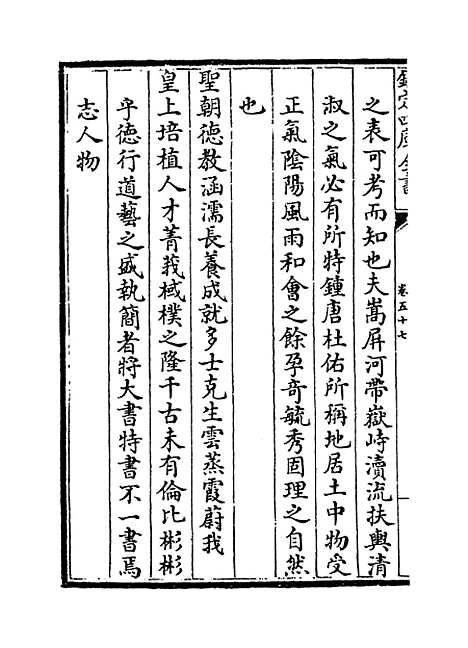 欽定四庫全書
卷五十七
之表可考而知也夫嵩屏河帶嶽峙瀆流扶輿清
淑之氣必有所特鍾唐杜佑所稱地居土中物受
正氣陰陽風雨和會之餘孕奇毓秀固理之自然
也
聖朝德教涵濡長養成就多士克生雲蒸霞蔚我
皇上培植人才菁莪棫樸之隆千古未有倫比彬彬
乎德行道藝之盛執簡者將大書特書不一書焉
志人物